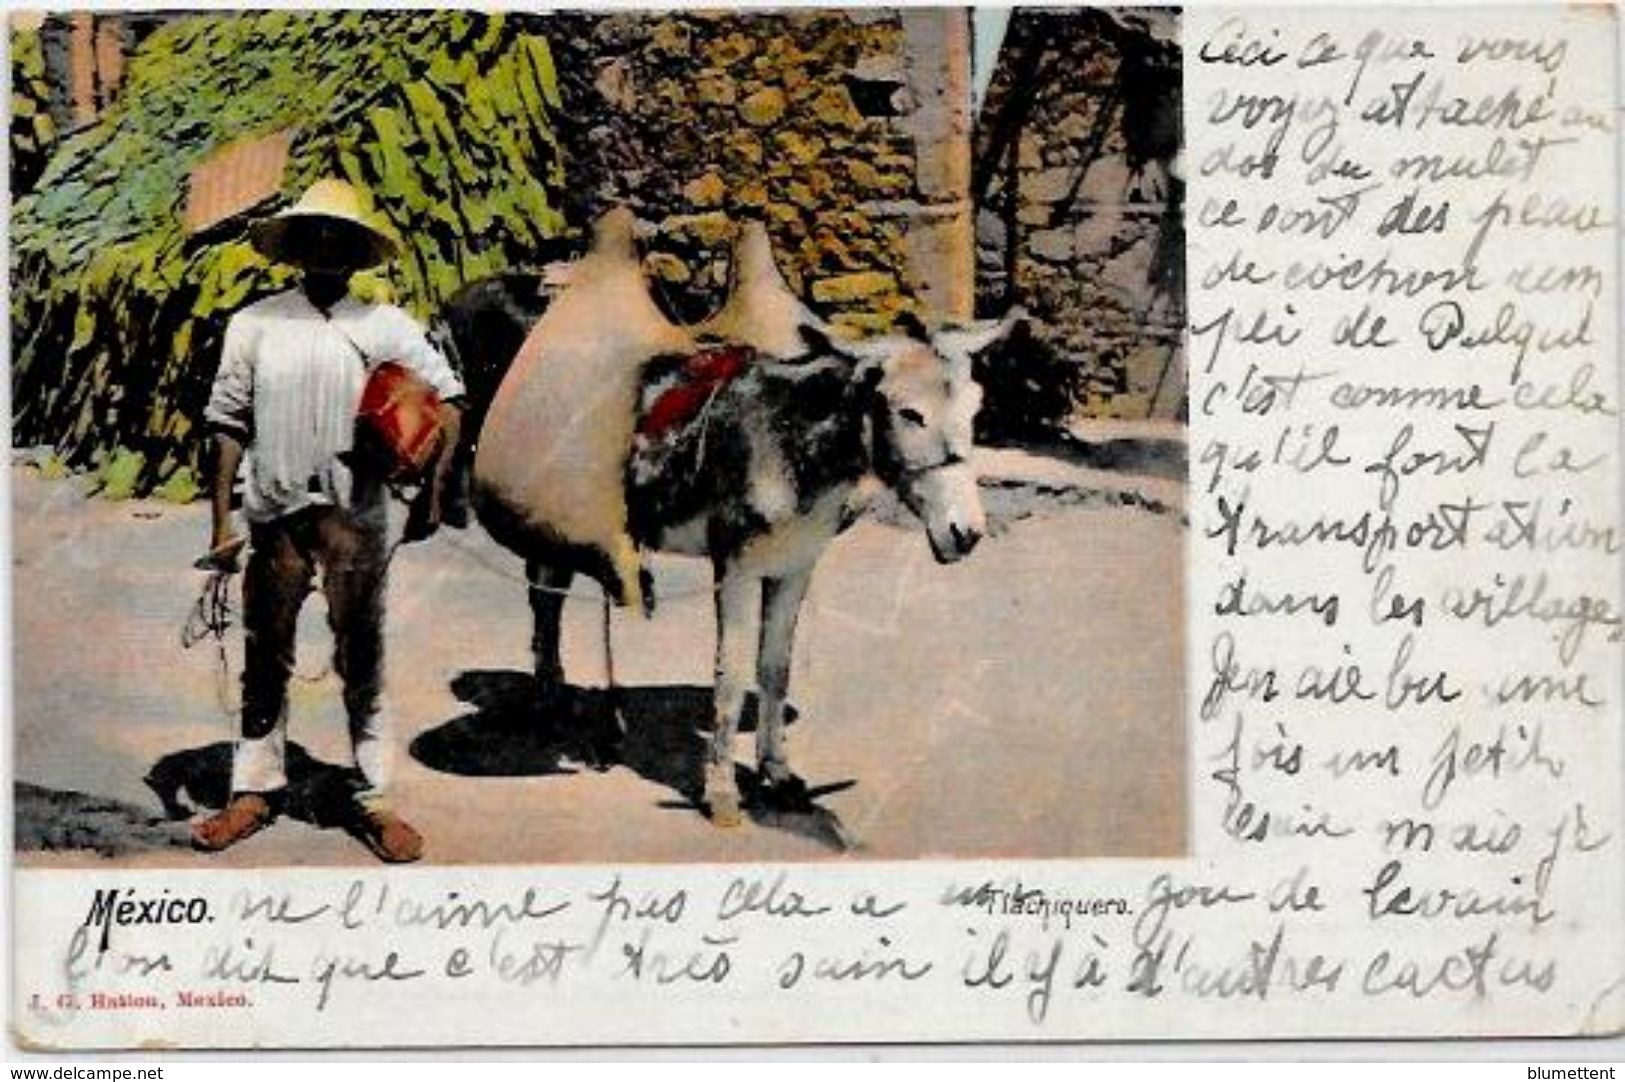 Ceci ce que vous
voyez attaché au
dos du mulèt
ce sont des peau
de cochon rem
pli de Pulqui
c'est comme cela
qu'il font la
transportation
dans les village
J'en aie bu une
fois un petit
mais je
México. ne l'aime pas cela a un gou de levain
Tlachiquero.
l'on dit que c'est très sain il y à d'autres cactus
J. G. Hatton, Mexico.
www.delcampe.net
blumettent